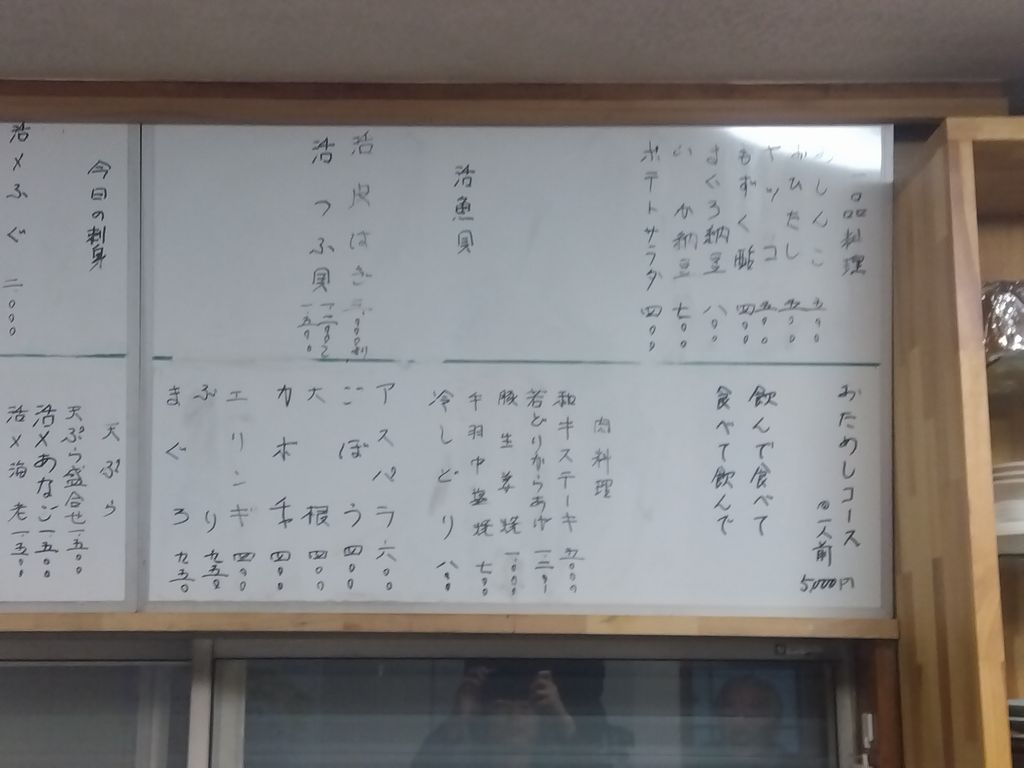 一品料理
おしんこ 五〇〇
おひたし 五〇〇
ヤッコ 五〇〇
もずく酢 四〇〇
まぐろ納豆 八〇〇
いか納豆 七〇〇
ポテトサラダ 四〇〇
活魚貝
活皮はぎ
活つぶ貝
おためしコース
一人前
5,000円
飲んで食べて
食べて飲んで
肉料理
和牛ステーキ 五〇〇〇
若どりからあげ
豚生姜焼 一〇〇〇
手羽中塩焼 七〇〇
冷しどり 八〇〇
アスパラ 六〇〇
ごぼう 四〇〇
大根 四〇〇
カボチャ 四〇〇
エリンギ 四〇〇
ぶり 九五〇
まぐろ 九五〇
今日の刺身
活〆ふぐ 二〇〇〇
天ぷら
天ぷら盛合せ 一五〇〇
活〆あなご 一五〇〇
活〆海老 一五〇〇